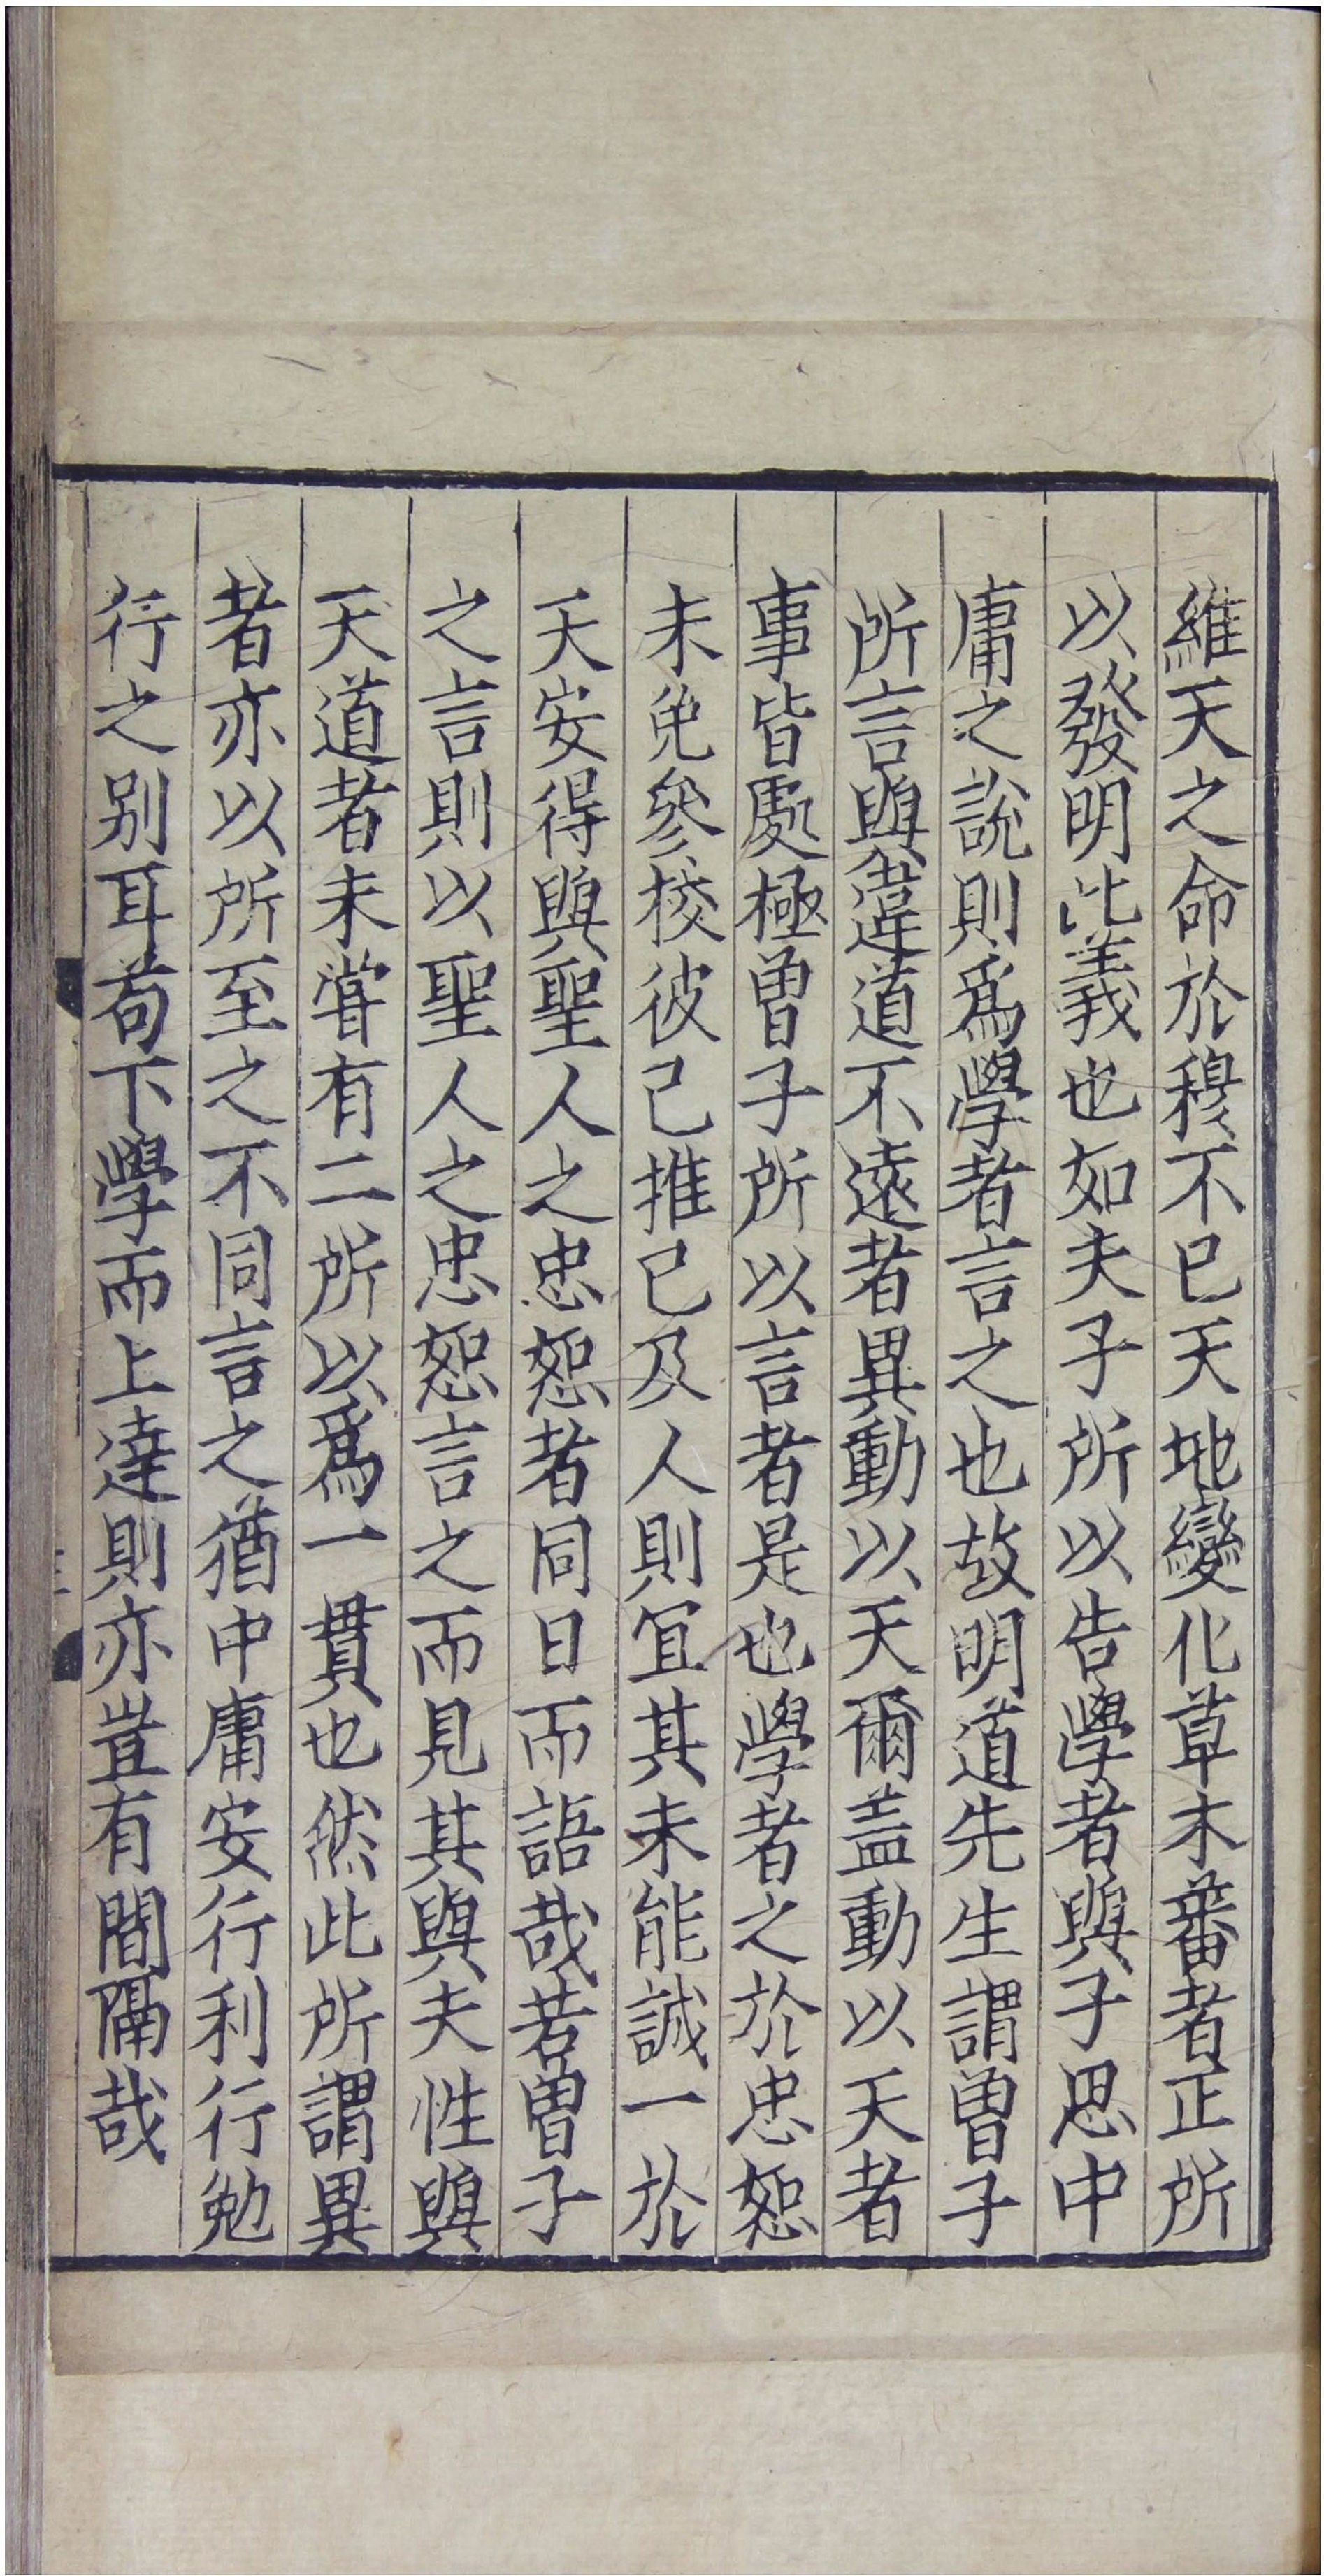 維天之命於穆不已天地變化草木蕃者正所
以發明此義也如夫子所以告學者與子思中
庸之說則爲學者言之也故明道先生謂曾子
所言與違道不遠者異動以天爾盖動以天者
事皆處極曾子所以言者是也學者之於忠恕
未免叅校彼己推己及人則宜其未能誠一於
天安得與聖人之忠恕者同日而語哉若曾子
之言則以聖人之忠恕言之而見其與夫性與
天道者未甞有二所以爲一貫也然此所謂異
者亦以所至之不同言之猶中庸安行利行勉
行之别耳苟下學而上達則亦豈有間隔哉